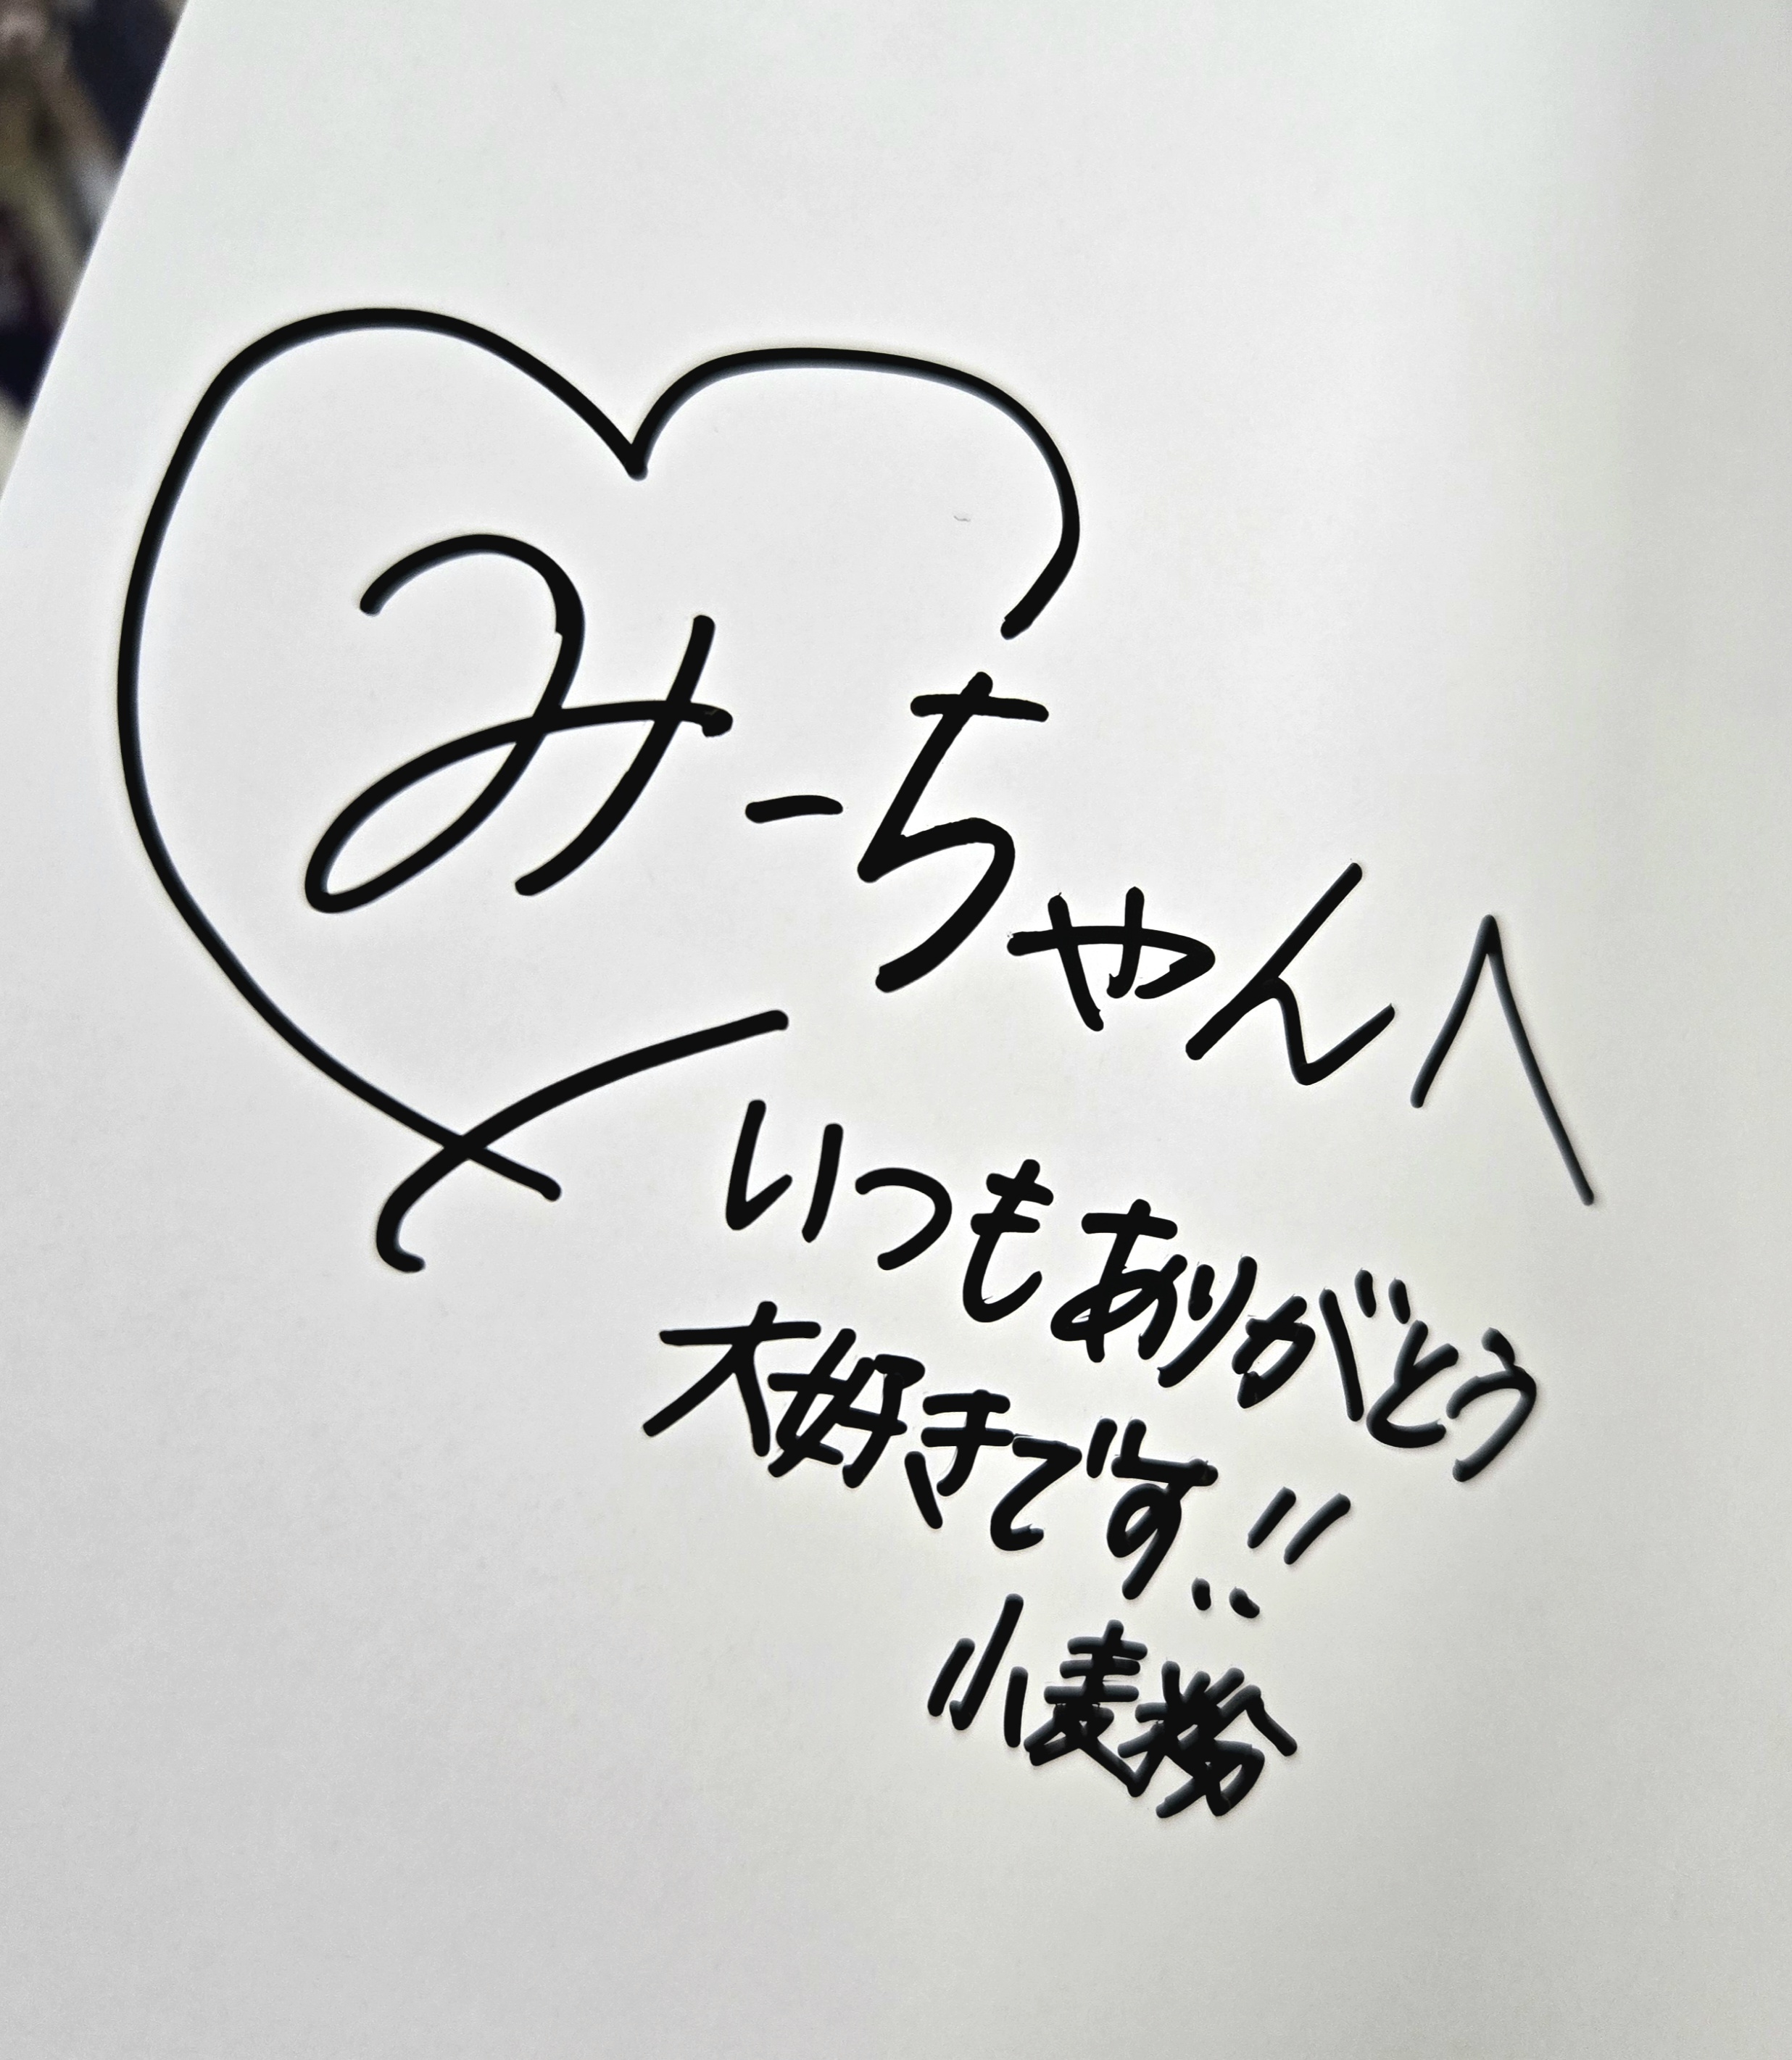 みーちゃんへ
いつもありがとう
大好きです!!
小麦粉